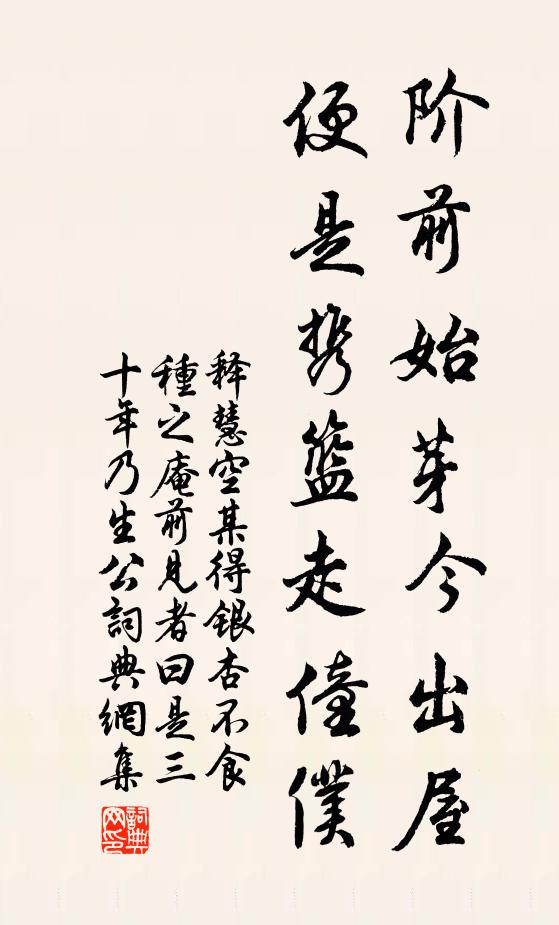 阶前始芽今出屋
便是携籃走僮僕
释慧空某得銀杏不食
種之庵前見者曰是三
十年乃生公詞典網集
詞典
网印